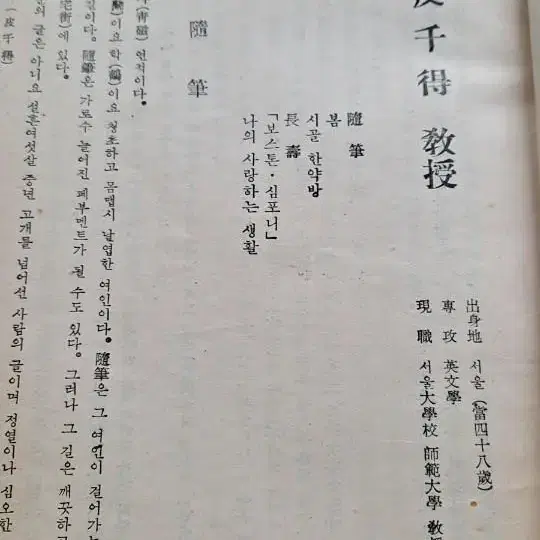 皮千得 敎授
出身地 서울 (當四十八歲)
專攻 英文學
現職 서울大學校 師範大學 敎授
隨筆
봄
시골 한약방
長壽
「보스톤・심포니」
나의 사랑하는 생활
隨筆
(靑磁) 연적이다.
이요 학(鶴)이요 청초하고 몸맵시 날엽한 여인이다. 隨筆은 그 여인이 걸어가는
길이다. 隨筆은 가로수 늘어진 페부멘트가 될 수도 있다. 그러나 그 길은 깨끗하고
宅街)에 있다.
의 글은 아니요 설흔여섯살 중년 고개를 넘어선 사람의 글이며 정열이나 심오한
(皮千得)